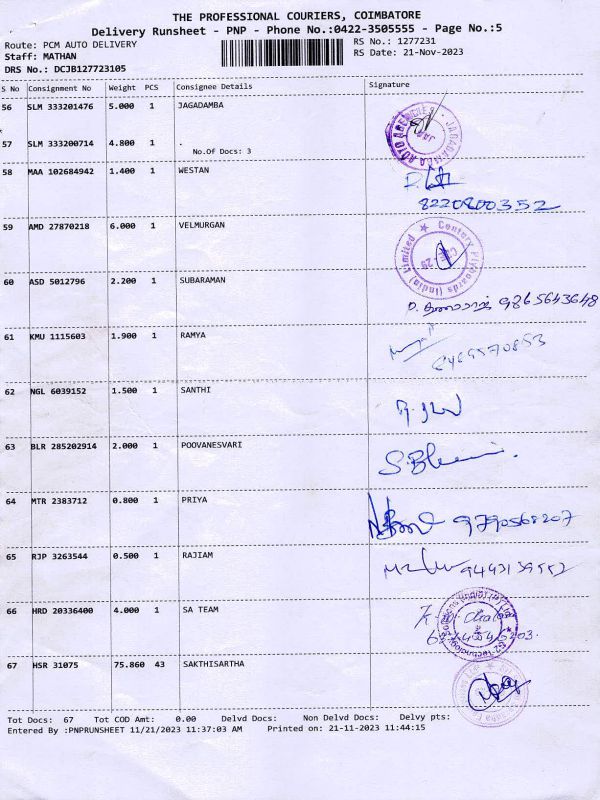 THE PROFESSIONAL COURIERS, COIMBATORE
Delivery Runsheet - PNP - Phone No.:0422-3505555 - Page No.:5
Route: PCM AUTO DELIVERY RS No.: 1277231
Staff: MATHAN RS Date: 21-Nov-2023
DRS No.: DCJB127723105
S No Consignment No Weight PCS Consignee Details Signature
56 SLM 333201476 5.000 1 JAGADAMBA
57 SLM 333200714 4.800 1 .
No.Of Docs: 3
58 MAA 102684942 1.400 1 WESTAN
8220800352
59 AMD 27870218 6.000 1 VELMURGAN
CenterX Plyboards (India) Limited
60 ASD 5012796 2.200 1 SUBARAMAN
9865643648
61 KMU 1115603 1.900 1 RAMYA
62 NGL 6039152 1.500 1 SANTHI
63 BLR 285202914 2.000 1 POOVANESVARI
64 MTR 2383712 0.800 1 PRIYA
9790568207
65 RJP 3263544 0.500 1 RAJIAM
9443139552
66 HRD 20336400 4.000 1 SA TEAM
67 HSR 31075 75.860 43 SAKTHISARTHA
Tot Docs: 67 Tot COD Amt: 0.00 Delvd Docs: Non Delvd Docs: Delvy pts:
Entered By :PNPRUNSHEET 11/21/2023 11:37:03 AM Printed on: 21-11-2023 11:44:15